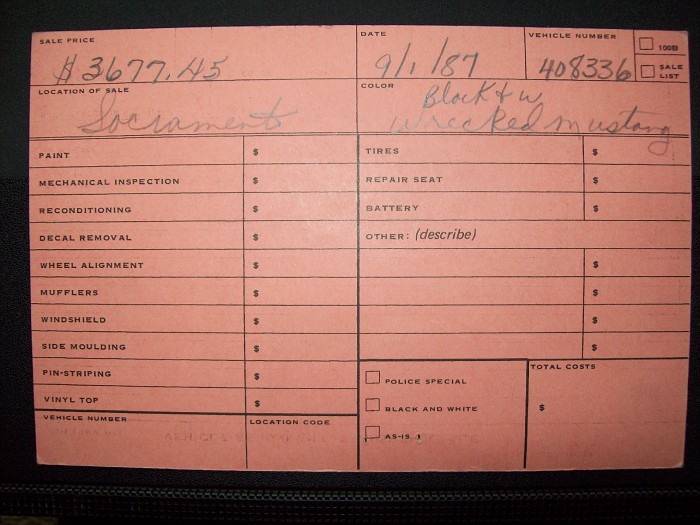 SALE PRICE
$ 3677.45
DATE
9/1/87
VEHICLE NUMBER
408336
100B
SALE LIST
LOCATION OF SALE
Sacramento
COLOR
Black & W
Wrecked Mustang
PAINT $
MECHANICAL INSPECTION $
RECONDITIONING $
DECAL REMOVAL $
WHEEL ALIGNMENT $
MUFFLERS $
WINDSHIELD $
SIDE MOULDING $
PIN-STRIPING $
VINYL TOP $
VEHICLE NUMBER
LOCATION CODE
TIRES $
REPAIR SEAT $
BATTERY $
OTHER: (describe)
$
$
$
$
POLICE SPECIAL
BLACK AND WHITE
AS-IS
TOTAL COSTS
$